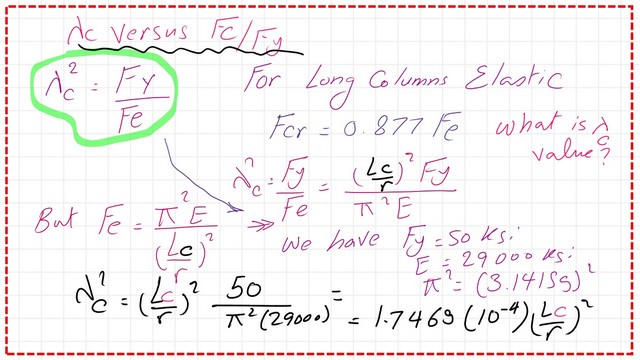 λc versus Fc/Fy
λc² = Fy/Fe
For Long Columns Elastic
Fcr = 0.877 Fe
what is λc value?
λc² = Fy/Fe = (Lc/r)² Fy / π²E
But Fe = π²E/(Lc/r)² >>
we have Fy = 50 ksi
E = 29000 ksi
π² = (3.14159)²
λc² = (Lc/r)² 50/π²(29000) =
= 1.7469 (10⁻⁴) (Lc/r)²